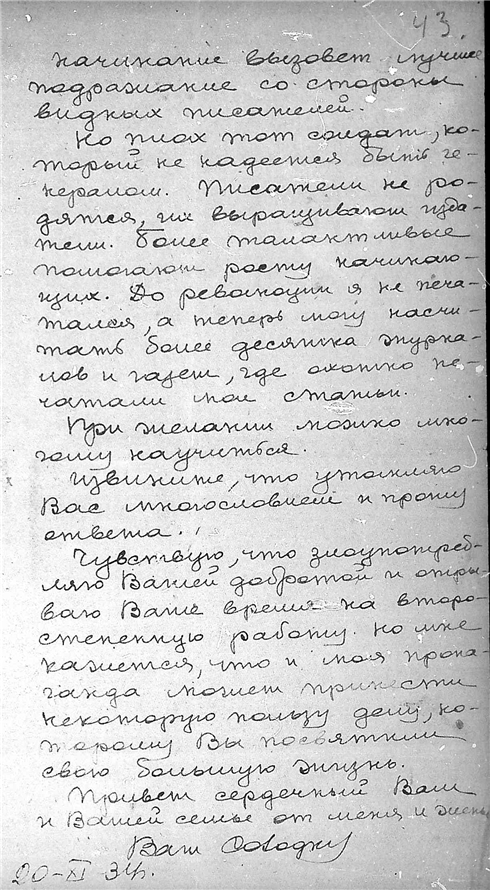 43.
начинание вызовет лучшее
подражание со стороны
видных писателей.
Но плох тот солдат, ко-
торый не надеется быть ге-
нералом. Писатели не ро-
дятся, их выращивают изда-
тели. Более талантливые
помогают росту начинаю-
щих. До революции я не печа-
тался, а теперь могу насчи-
тать более десятка журна-
лов и газет, где охотно пе-
чатали мои статьи.
При желании можно мно-
гому научиться.
Извините, что утомляю
Вас многословием и прошу
ответа.
Чувствую, что злоупотреб-
ляю Вашей добротой и отры-
ваю Ваше время на второ-
степенную работу. Но мне
кажется, что и моя пропа-
ганда может принести
некоторую пользу делу, ко-
торому Вы посвятили
свою большую жизнь.
Привет сердечный Вам
и Вашей семье от меня и жены
Ваш
20-XI 34г.